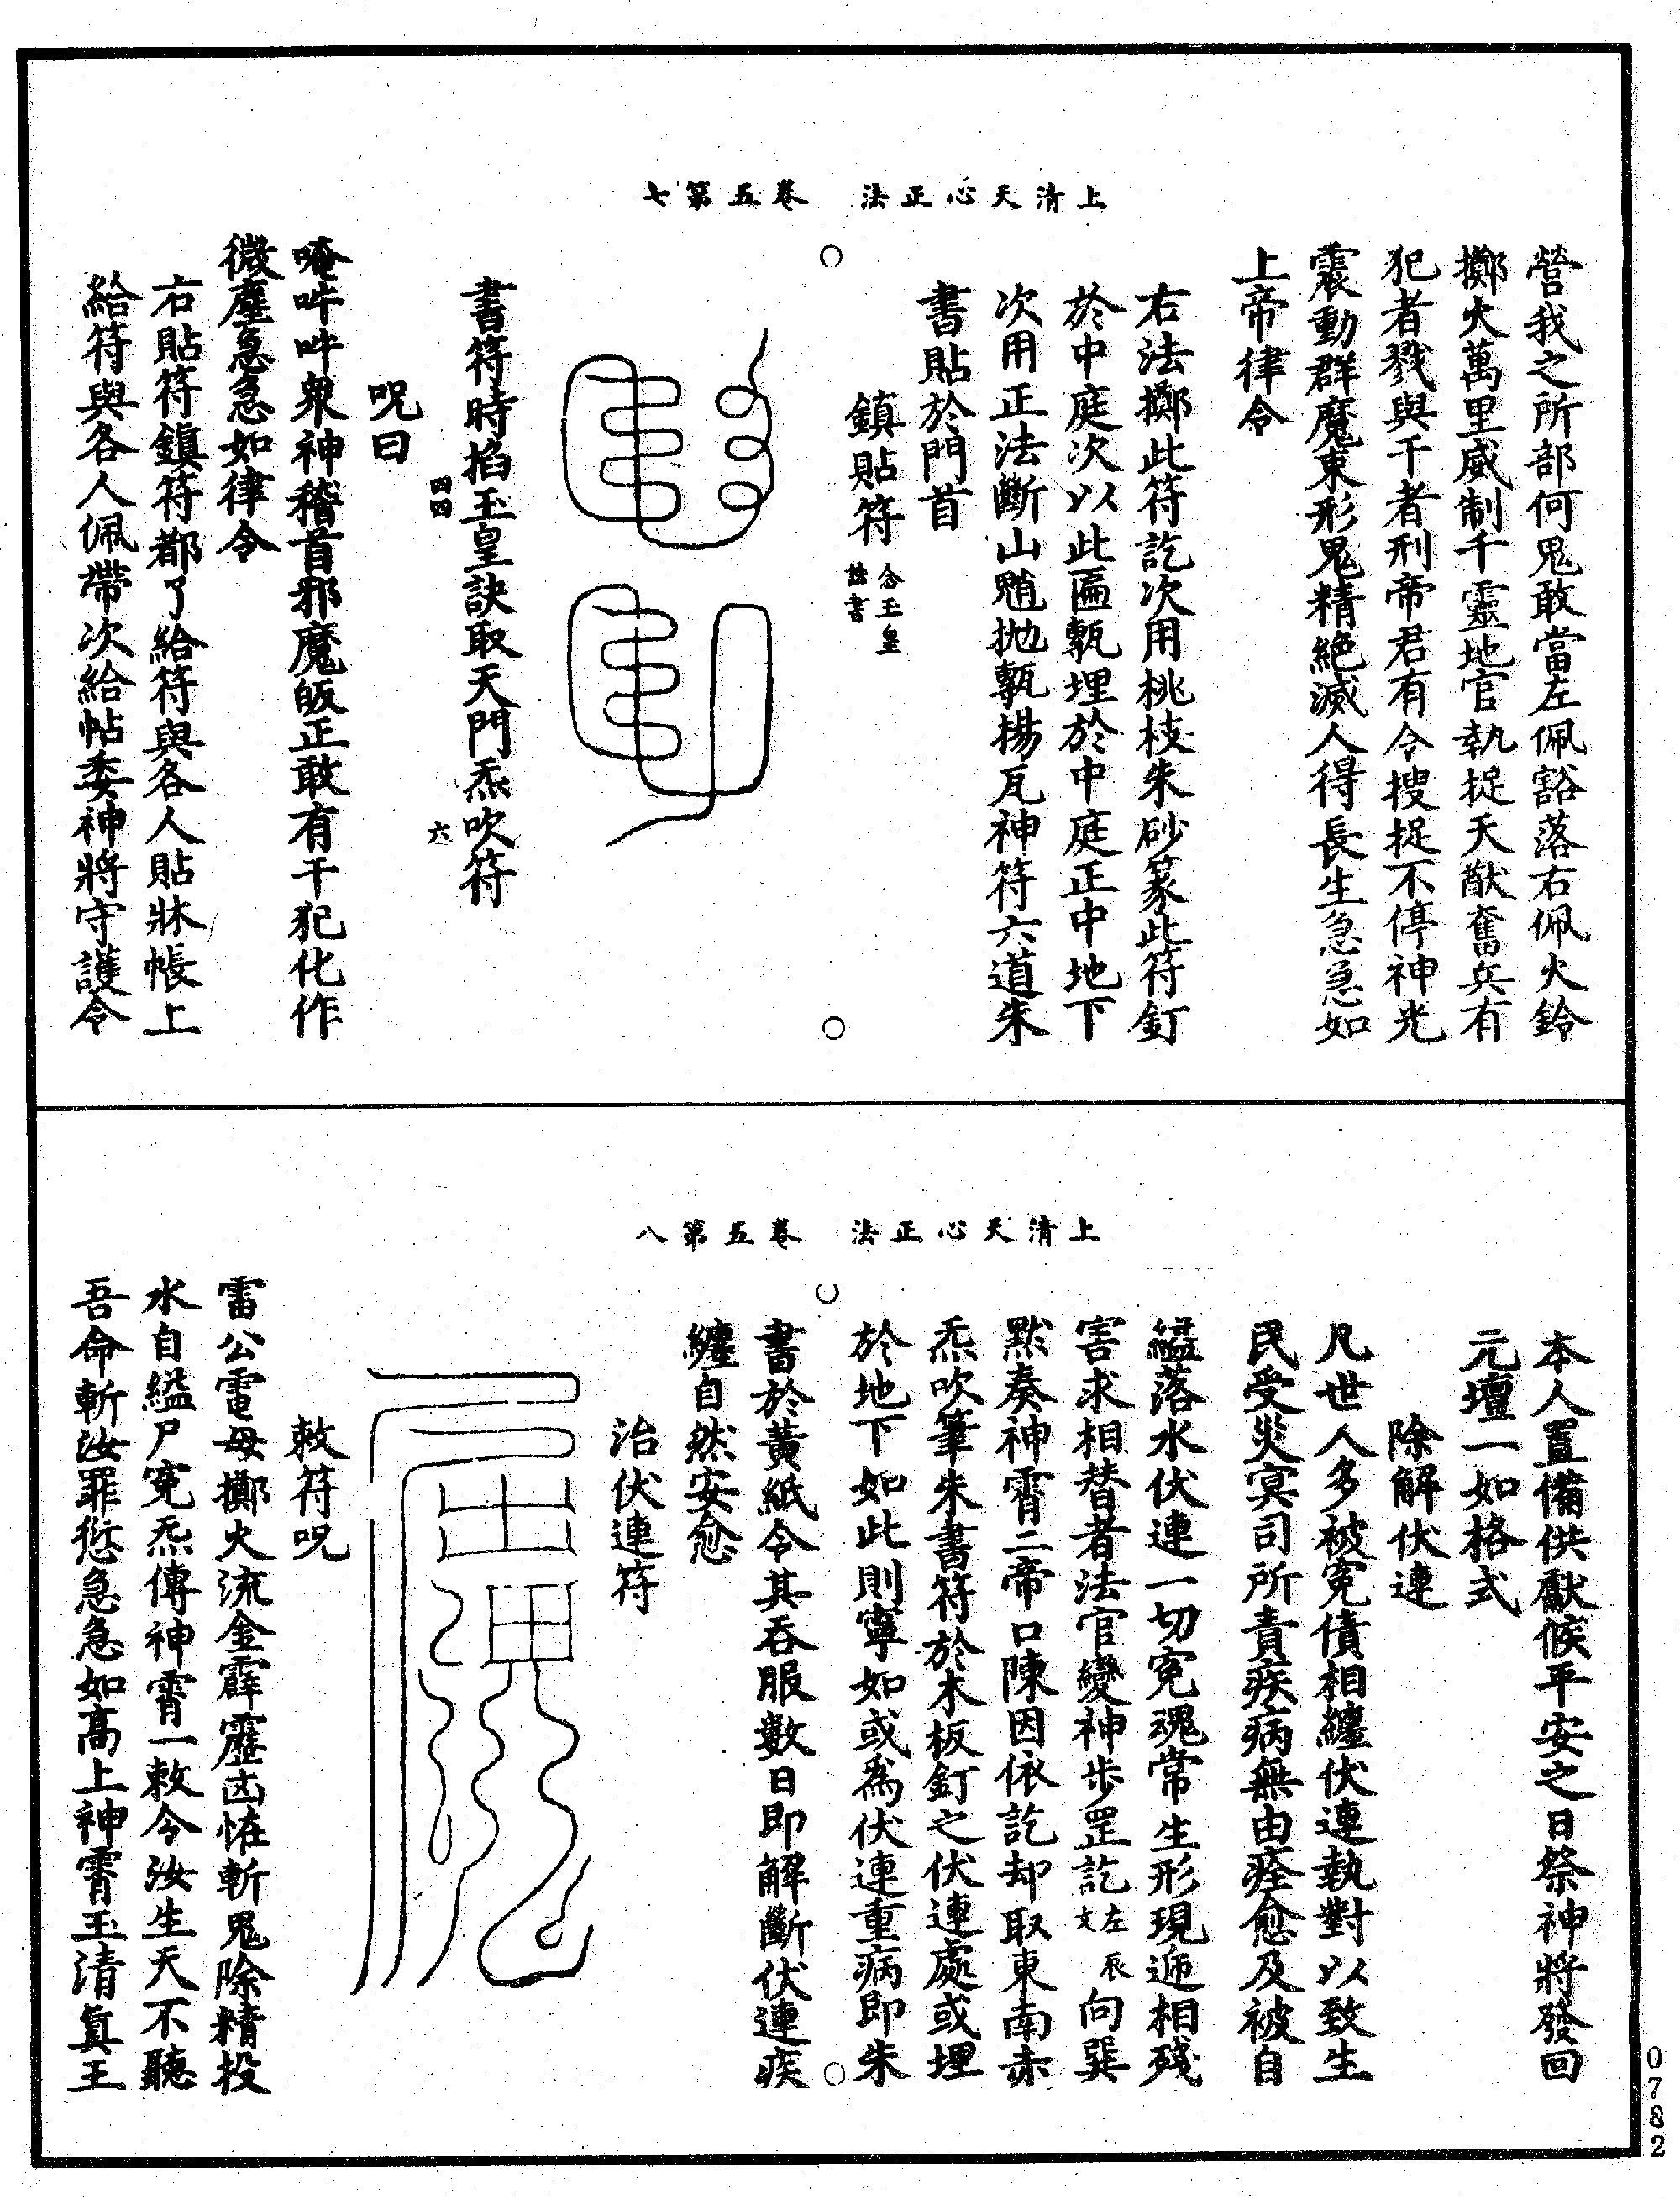 上清天心正法　卷五第七
營我之所部何鬼敢當左佩豁落右佩火鈴
擲火萬里威制千靈地官執捉天猷奮兵有
犯者戮與千者刑帝君有令搜捉不停神光
震動群魔束形鬼精絕滅人得長生急急如
上帝律令
右法擲此符訖次用桃枝朱砂篆此符釘
於中庭次以此匾甎埋於中庭正中地下
次用正法斷山魈拋甎揚瓦神符六道朱
書貼於門首
鎮貼符念玉皇
諱書
書符時掐玉皇訣取天門炁吹符
四四　六
呪曰
唵吽吽衆神稽首邪魔皈正敢有干犯化作
微塵急急如律令
右貼符鎮符都了給符與各人貼牀帳上
給符與各人佩帶次給帖委神將守護令
上清天心正法　卷五第八
本人置備供獻候平安之日祭神將發回
元壇一如格式
除解伏連
凡世人多被冤債相纏伏連執對以致生
民受災冥司所責疾病無由痊愈及被自
縊落水伏連一切冤魂常生形現遞相殘
害求相替者法官變神步罡訖左辰文向巽
默奏神霄二帝口陳因依訖却取東南赤
炁吹筆朱書符於木板釘之伏連處或埋
於地下如此則寧如或為伏連重病即朱
書於黃紙令其吞服數日即解斷伏連疾
纏自然安愈
治伏連符
敕符呪
雷公電母擲火流金霹靂凶怪斬鬼除精投
水自縊尸寃炁傳神霄一敕令汝生天不聽
吾命斬汝罪愆急急如高上神霄玉清真王
0782